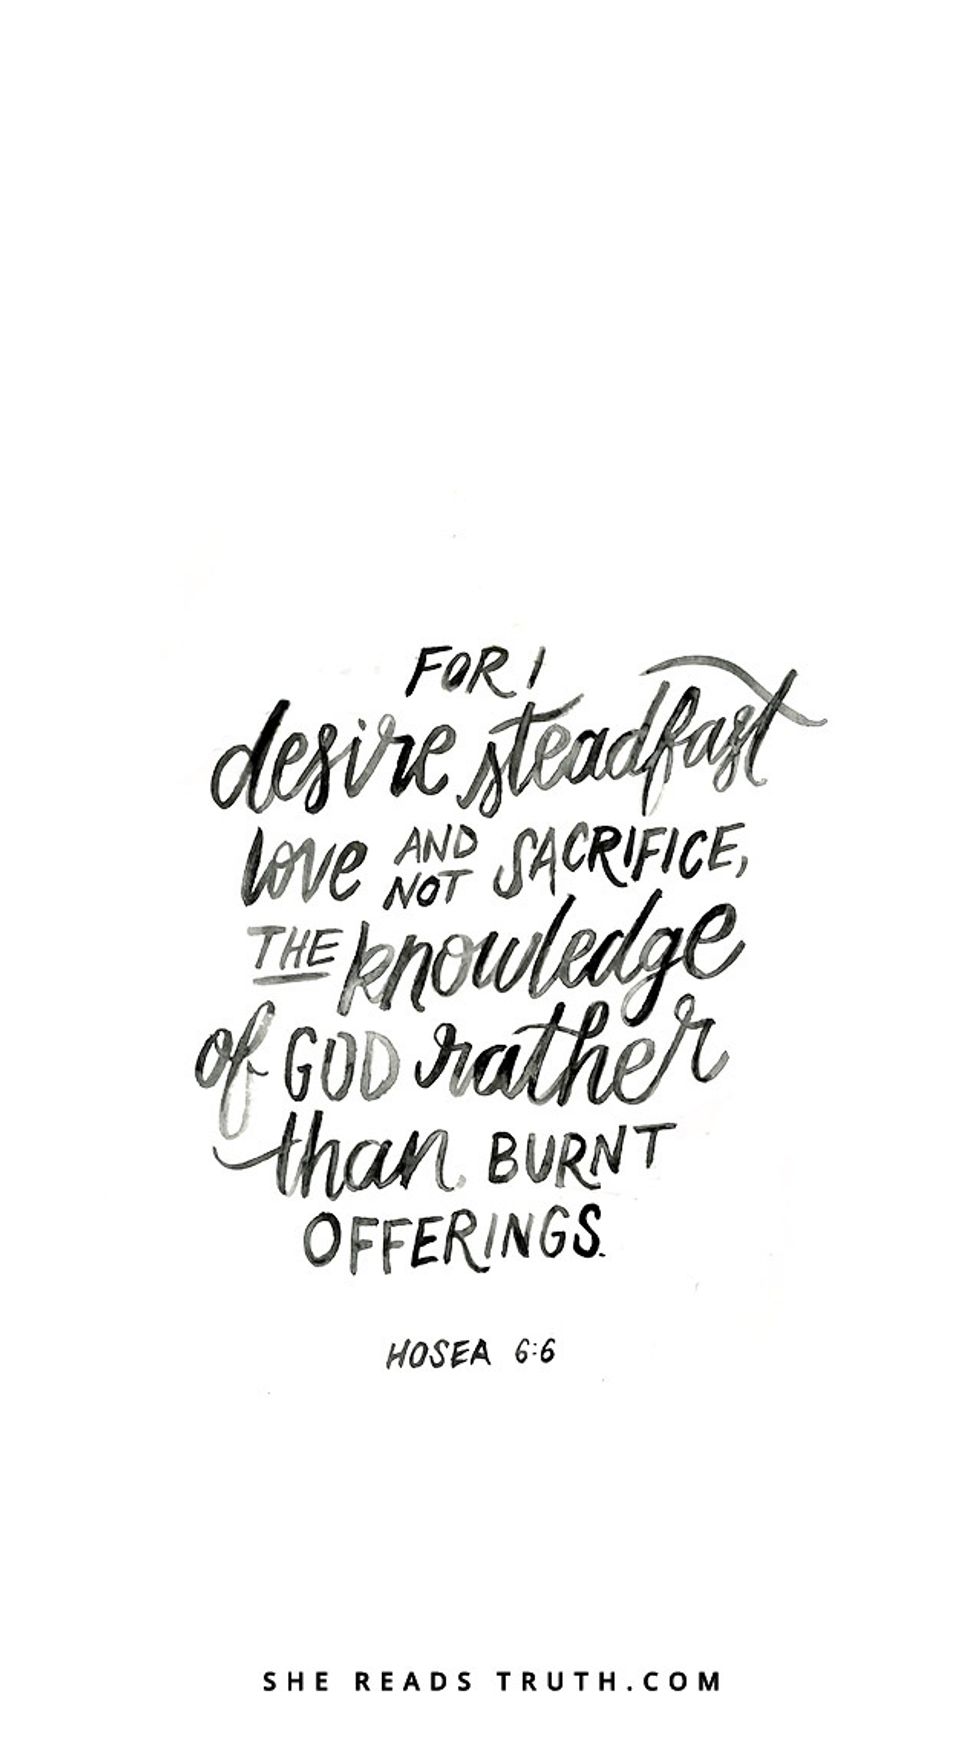 FOR I
desire steadfast
love AND NOT SACRIFICE,
THE knowledge
of GOD rather
than BURNT
OFFERINGS.
HOSEA 6:6
SHE READS TRUTH.COM